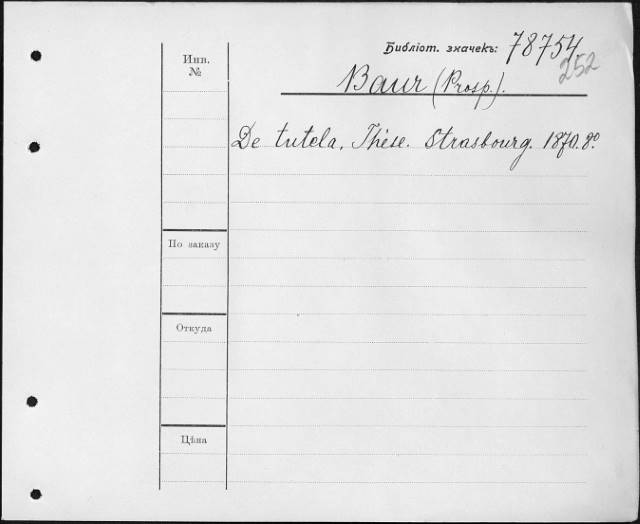 Библіот. значекъ: 78754
252
Baur (Prosp.).
De tutela. Thèse. Strasbourg. 1870. 8º.
Инв.
№
По заказу
Откуда
Цѣна